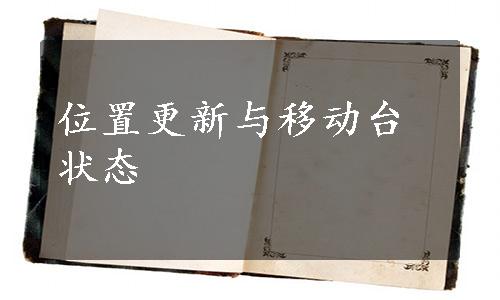 位置更新与移动台
状态